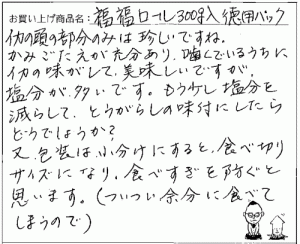 お買い上げ商品名：福福ロール300g入徳用パック
イカの頭の部分のみは珍しいですね。
かみごたえが充分あり、噛くでいるうちに
イカの味がして、美味しいですが、
塩分が多いです。もう少し塩分を
減らして、とうがらしの味付にしたら
どうでしょうか？
又、包装は小分けにすると、食べ切り
サイズになり、食べすぎを防ぐと
思います。（ついつい余分に食べて
しまうので）